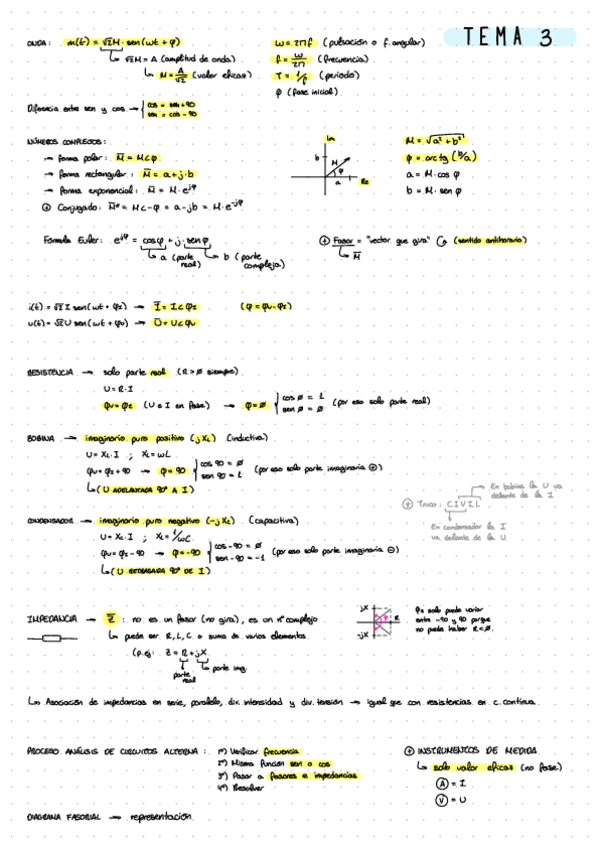 TEMA 3
ONDA: m(t) = √2M · sen(wt + φ)
√2M = A (amplitud de onda)
M = A/√2 (valor eficaz)
ω = 2πf (pulsación o f. angular)
f = ω/2π (frecuencia)
T = 1/f (periodo)
φ (fase inicial)
Diferencia entre sen y cos → cos = sen + 90
sen = cos - 90
NÚMEROS COMPLEJOS:
→ Forma polar: M̅ = M∠φ
→ Forma rectangular: M̅ = a + j·b
→ Forma exponencial: M̅ = M·e^jφ
⊕ Conjugado: M̅* = M∠-φ = a - jb = M·e^-jφ
Im
b
M
φ
a
Re
M = √a² + b²
φ = arc tg (b/a)
a = M· cos φ
b = M· sen φ
Fórmula Euler: e^jφ = cosφ + j·senφ
a (parte real)
b (parte compleja)
⊕ Fasor = "vector que gira" (sentido antihorario)
M̅
i(t) = √2 I sen(wt + φI) → I̅ = I∠φI
(φ = φu - φI)
u(t) = √2 U sen(wt + φu) → U̅ = U∠φu
RESISTENCIA → solo parte real (R > ∅ siempre)
U = R·I
φu = φI (U e I en fase) → φ = ∅ cos ∅ = 1
sen ∅ = ∅
(por eso solo parte real)
BOBINA → imaginario puro positivo (jXL) (inductiva)
U = XL·I ; XL = wL
φu = φI + 90 → φ = 90 cos 90 = ∅
sen 90 = 1
(por eso solo parte imaginaria ⊕)
(U ADELANTADA 90° A I)
⊕ Truco: CIVIL
En bobina la U va delante de la I
En condensador la I va delante de la U
CONDENSADOR → imaginario puro negativo (-jXc) (capacitiva)
U = Xc·I ; Xc = 1/wC
φu = φI - 90 → φ = -90 cos -90 = ∅
sen -90 = -1
(por eso solo parte imaginaria ⊖)
(U RETRASADA 90° DE I)
IMPEDANCIA → Z̅ : no es un fasor (no gira), es un nº complejo
puede ser R, L, C o suma de varios elementos
(p.ej: Z = R + jX
parte real
parte img.
jX
R
-jX
φz solo puede variar
entre -90 y 90 porque
no puede haber R < ∅.
Asociación de impedancias en serie, paralelo, div. intensidad y div. tensión → igual que con resistencias en c. continua.
PROCESO ANÁLISIS DE CIRCUITOS ALTERNA: 1º) Verificar frecuencia
2º) Misma función sen o cos
3º) Pasar a fasores e impedancias
4º) Resolver
⊕ INSTRUMENTOS DE MEDIDA
solo valor eficaz (no fase)
A = I
V = U
DIAGRAMA FASORIAL → representación